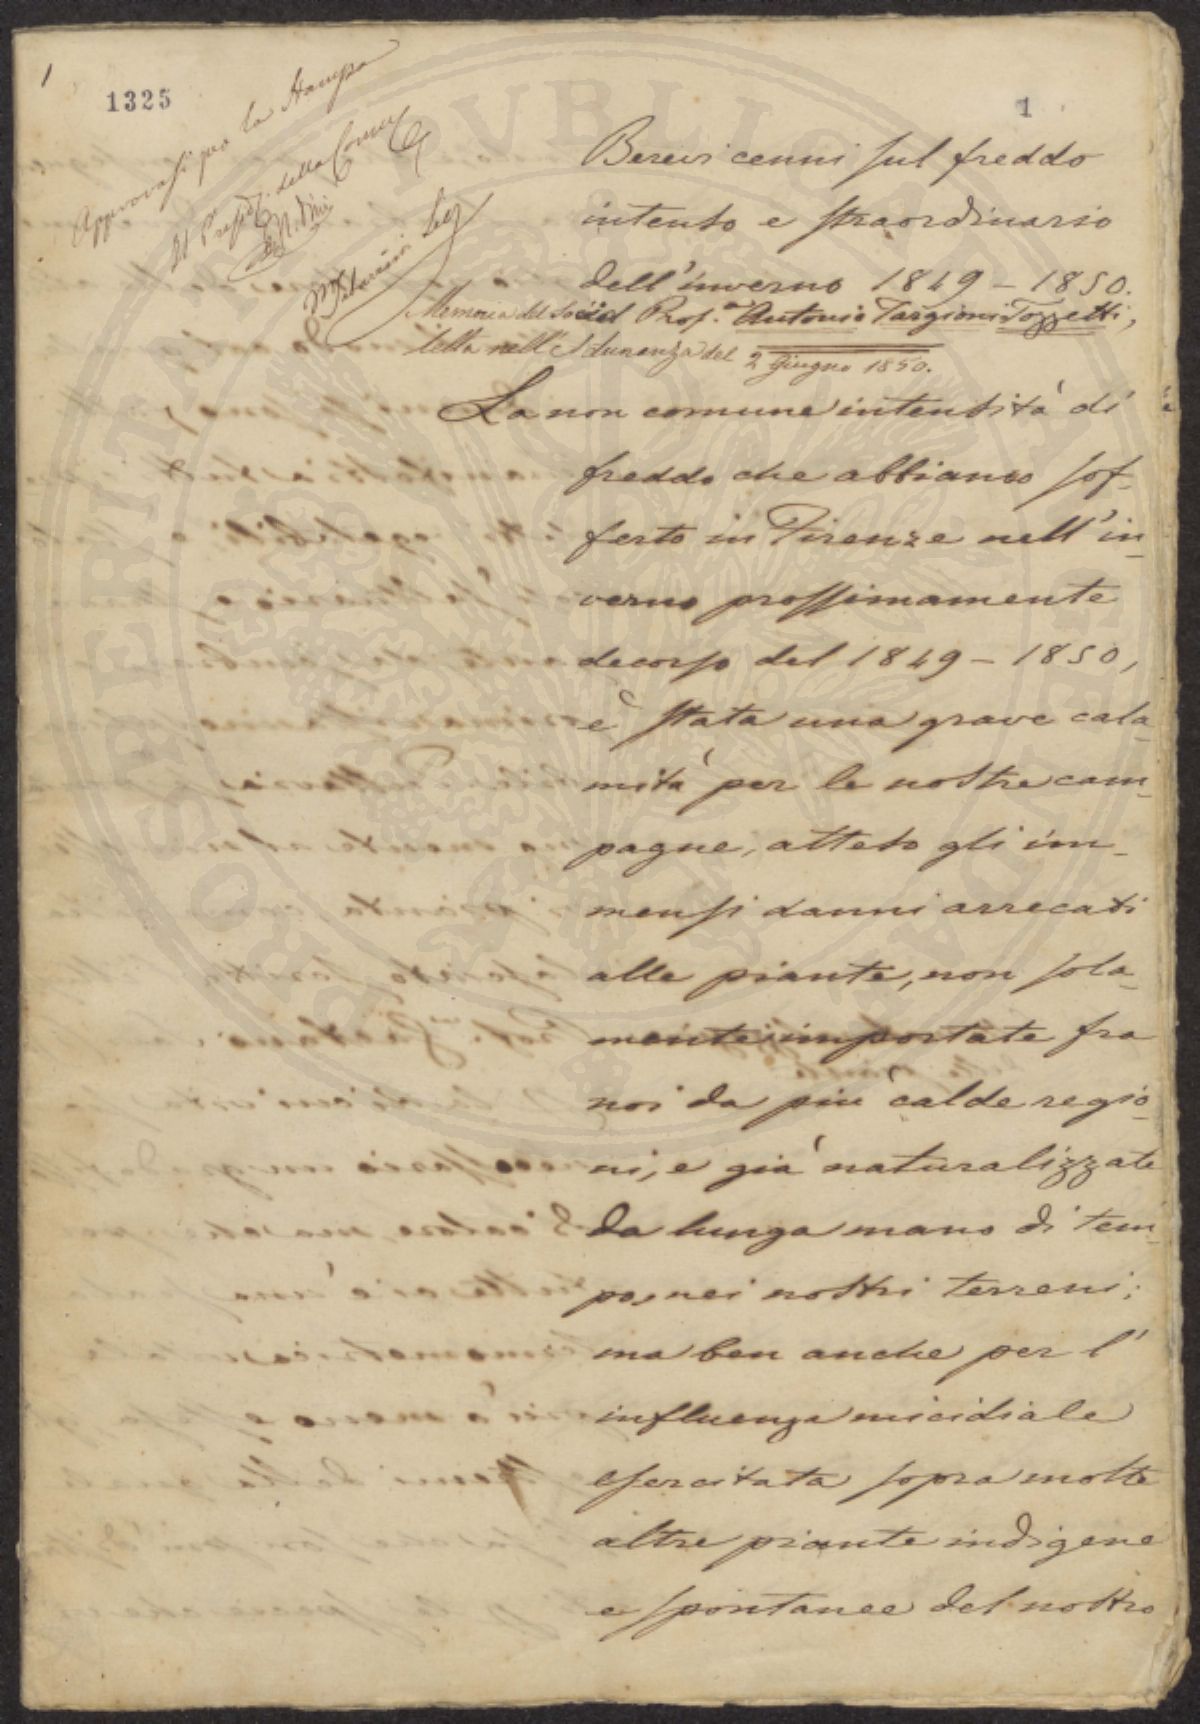 1
1325
1
Approvasi per la Stampa
Il Presid. della Comm.
Brevi cenni sul freddo
intenso e straordinario
dell'inverno 1849 - 1850.
Memoria del Socio Prof. Antonio Targioni Tozzetti,
letta nell'Adunanza del 2 Giugno 1850.
La non comune intensità di
freddo che abbiamo sof-
ferto in Firenze nell'in-
verno prossimamente
decorso del 1849 - 1850,
è stata una grave cala-
mità per le nostre cam-
pagne, atteso gli im-
mensi danni arrecati
alle piante, non sola-
mente importate fra
noi da più calde regio-
ni, e già naturalizzate
da lunga mano di tem-
po, nei nostri terreni;
ma ben anche per l'
influenza micidiale
esercitata sopra molte
altre piante indigene
e spontanee del nostro
PUBLICAE
PROSPERITATI